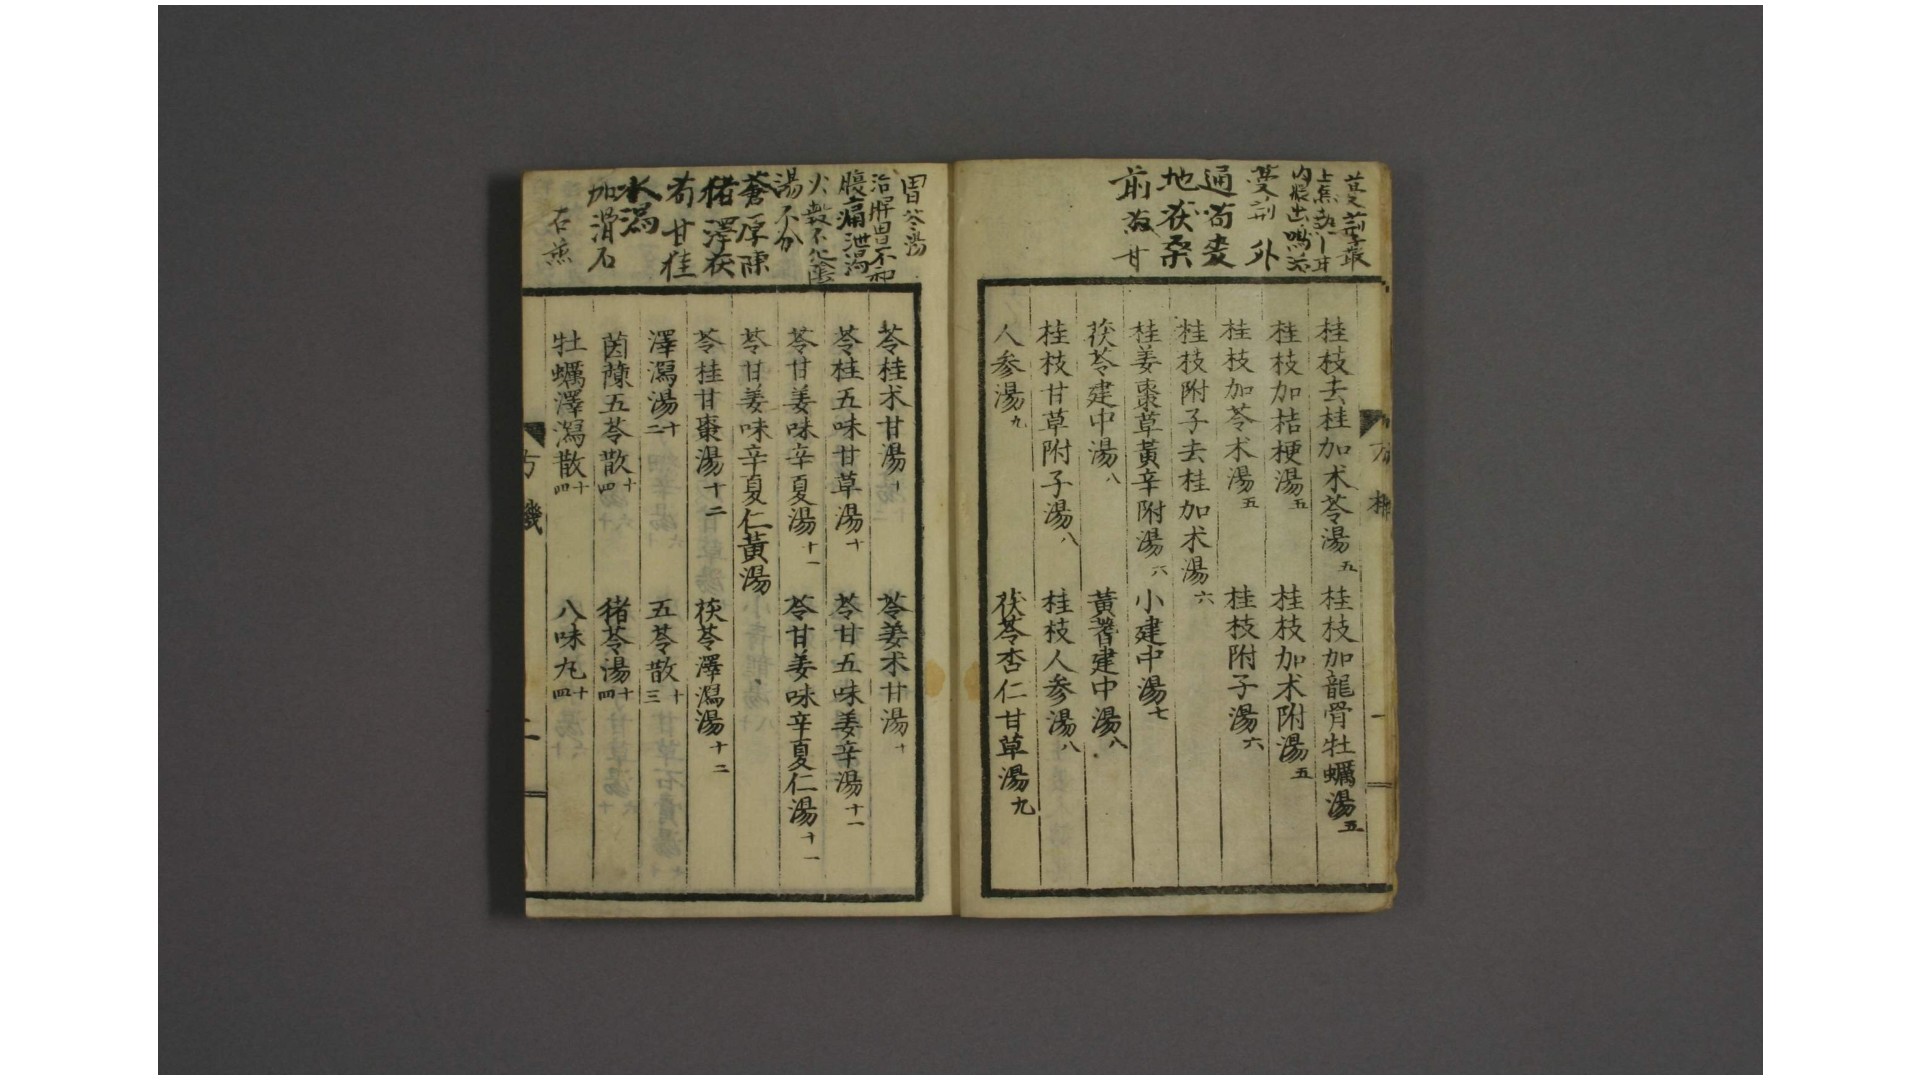 蔓荊叢
上焦熱
内脹出鳴
蔓荊 外
通苟麦
地茯桑
前 甘
桂枝去桂加朮苓湯五 桂枝加龍骨牡蠣湯五
桂枝加桔梗湯五 桂枝加朮附湯五
桂枝加苓朮湯五 桂枝附子湯六
桂枝附子去桂加朮湯六
桂姜棗草黃辛附湯六 小建中湯七
茯苓建中湯八 黃耆建中湯八
桂枝甘草附子湯八 桂枝人参湯八
人参湯九 茯苓杏仁甘草湯九
方機
一
胃苓湯
治脾胃不和
腹痛泄瀉
火穀不化陰
湯不分
蒼厚陳
猪澤茯
芍甘桂
水瀉
加滑石
石燕
苓桂朮甘湯十 苓姜朮甘湯十
苓桂五味甘草湯十 苓甘五味姜辛湯十一
苓甘姜味辛夏湯十一 苓甘姜味辛夏仁湯十一
苓甘姜味辛夏仁黃湯
苓桂甘棗湯十二 茯苓澤瀉湯十二
澤瀉湯十二 五苓散十三
茵蔯五苓散十四 猪苓湯十四
牡蠣澤瀉散十四 八味丸十四
方機
二